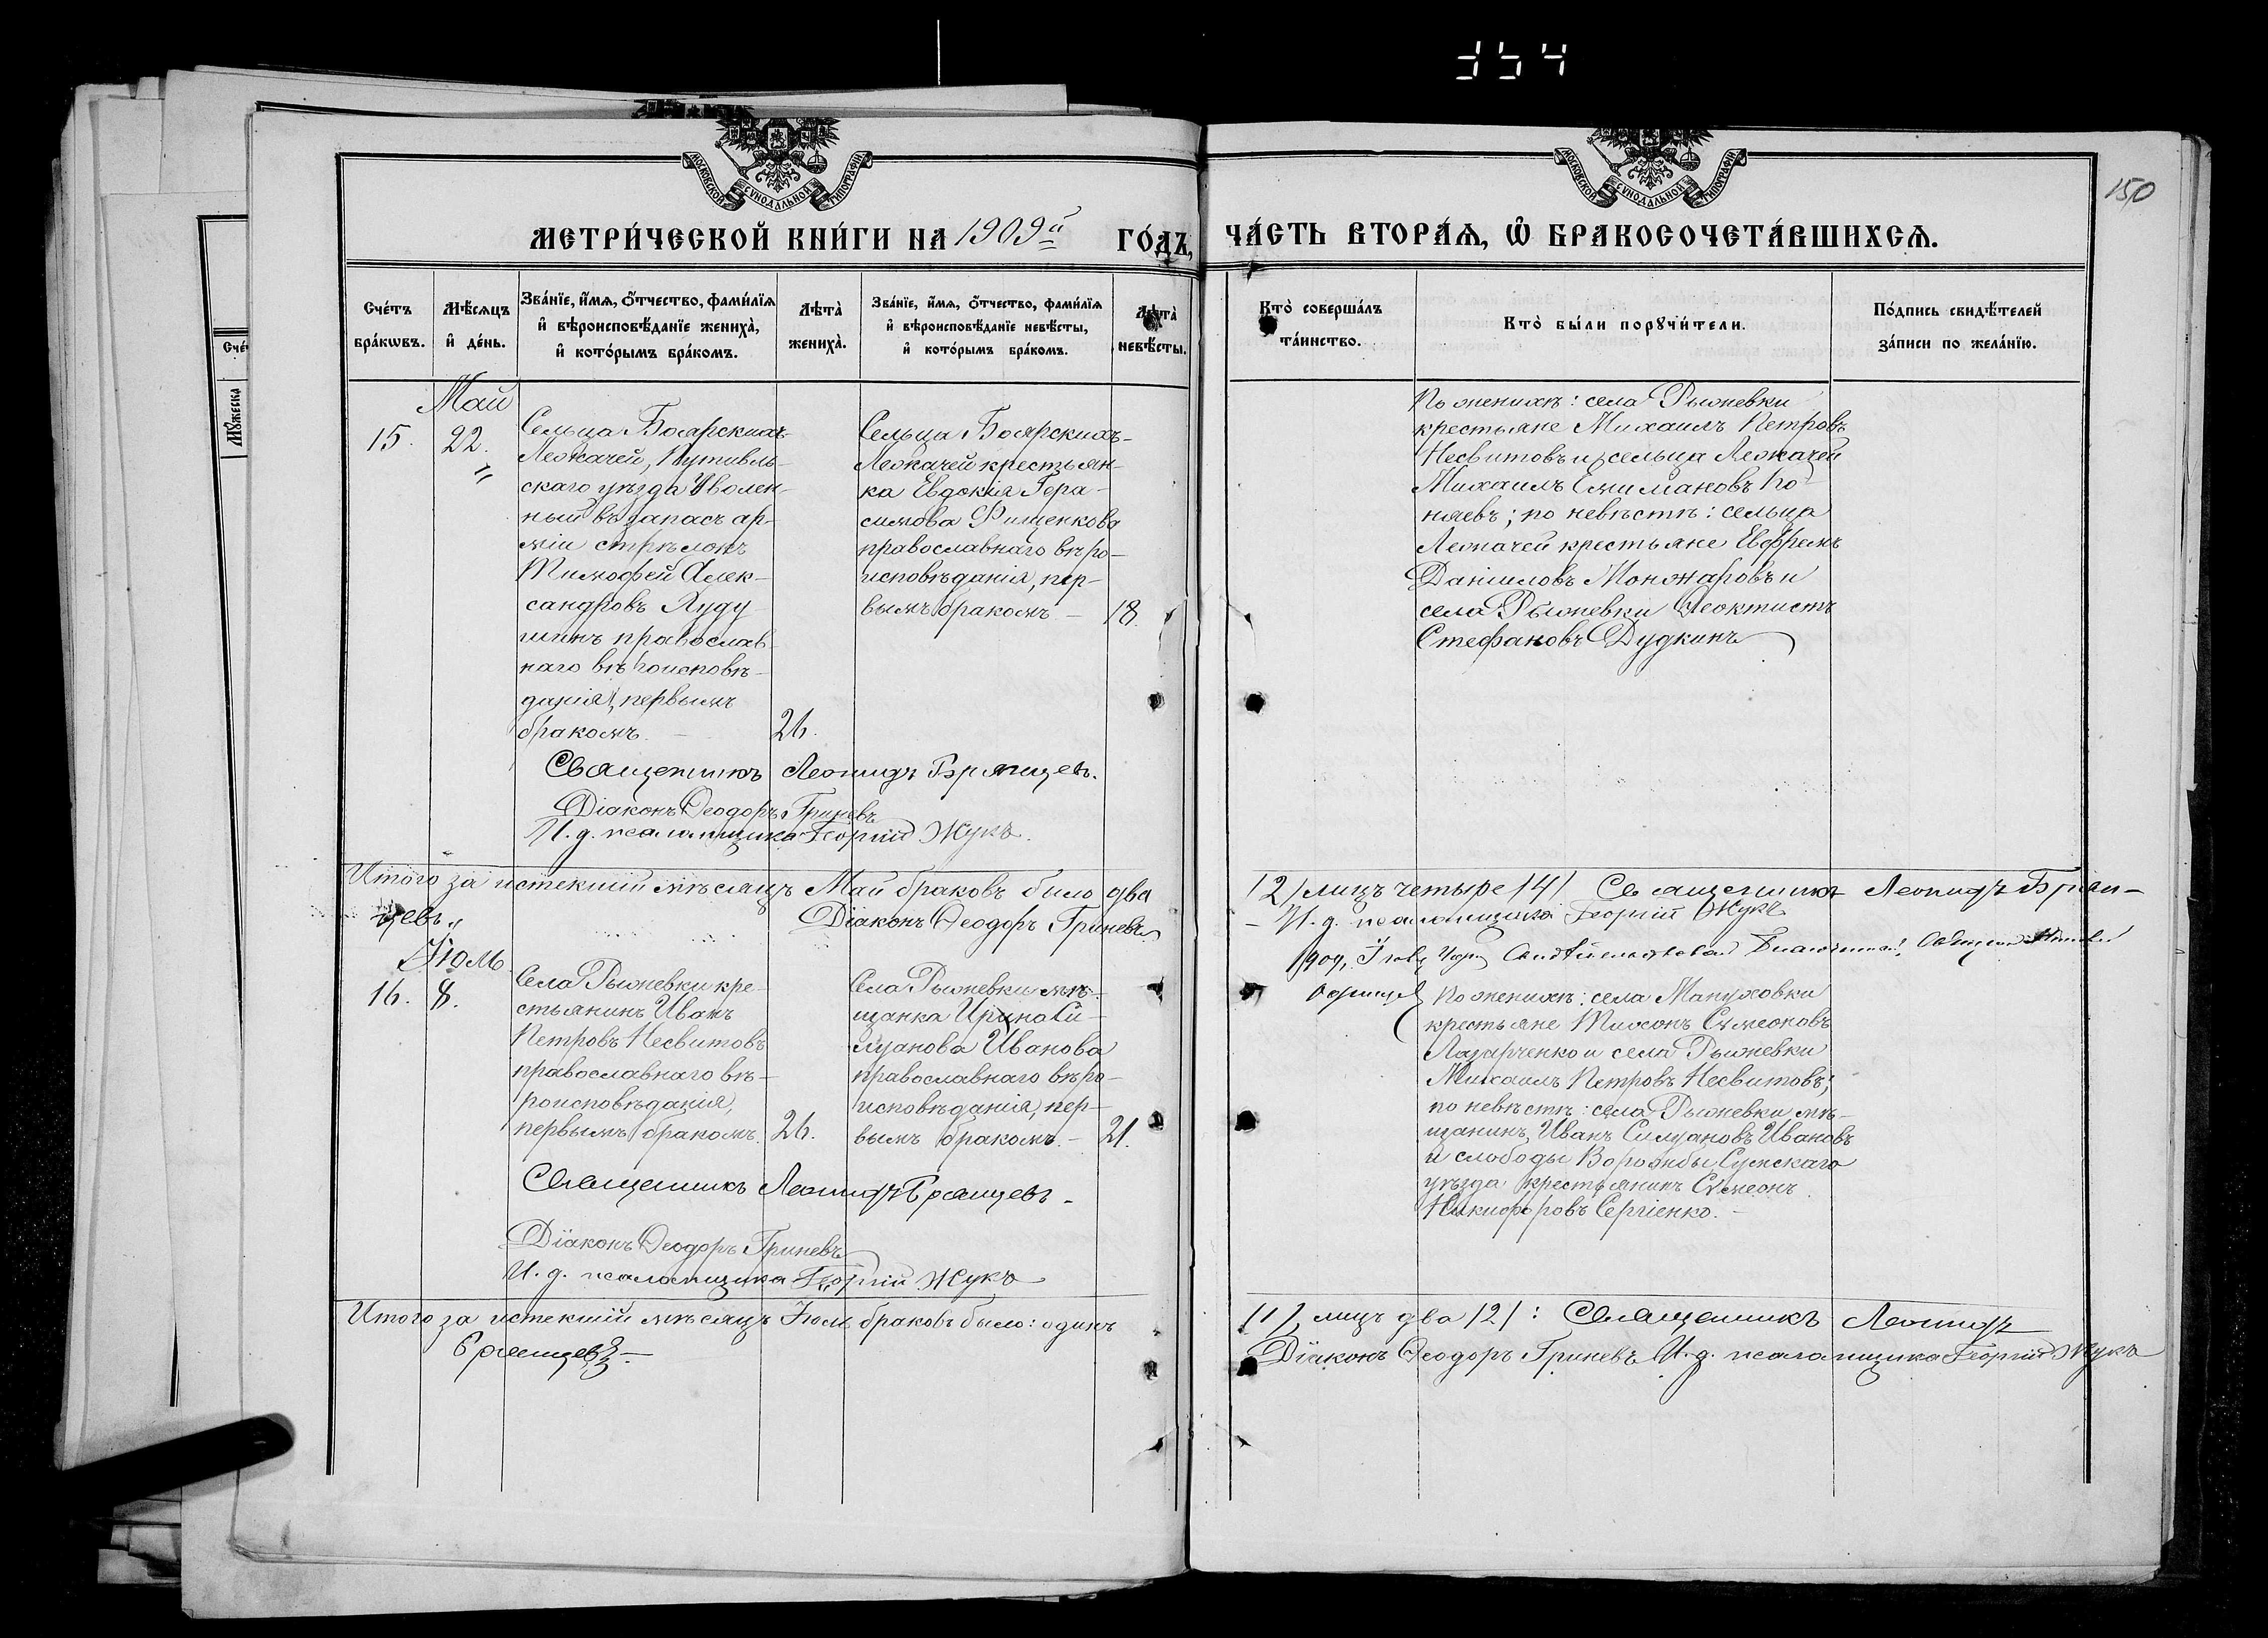 354
150
МОСКОВСКОЙ СѴНОДАЛЬНОЙ ТИПОГРАФІИ
МОСКОВСКОЙ СѴНОДАЛЬНОЙ ТИПОГРАФІИ
МЕТРИ́ЧЕСКОЙ КНИ́ГИ НА 1909й ГО́ДЪ,
ЧА́СТЬ ВТОРА́Ѧ, Ѡ҆ БРАКОСОЧЕТА́ВШИХСѦ.
Сче́тъ
бра́кѡвъ.
Мѣ́сѧцъ
и҆ де́нь.
Зва́нїе, и҆́мѧ, ѻ҆́тчество, фами́лїѧ
и҆ вѣроисповѣ́данїе жениха̀,
и҆ кото́рымъ бра́комъ.
Лѣта̀
жениха̀.
Зва́нїе, и҆́мѧ, ѻ҆́тчество, фами́лїѧ
и҆ вѣроисповѣ́данїе невѣ́сты,
и҆ кото́рымъ бра́комъ.
Лѣта̀
невѣ́сты.
Кто̀ соверша́лъ
та́инство.
Кто̀ бы́ли порꙋчи́тели.
По́дпись свидѣ́телей
за́писи по жела́нїю.
Сче́
Мꙋ́жеска
Май
15.
22.
Сельца Боярскихъ-
Лежачей, Путивль-
скаго уѣзда Уволен-
ный въ запасъ ар-
міи стрѣлокъ
Тимофей Алек-
сандровъ Луду
шинъ православ-
наго вѣроисповѣ-
данія, первымъ
бракомъ. –
26.
Сельца Боярскихъ-
Лежачей крестьян-
ка Евдокія Гера-
симова Фищенкова
православнаго вѣро-
исповѣданія, пер-
вымъ бракомъ. –
18.
По женихѣ: села Рыжевки
крестьяне Михаилъ Петровъ
Несвитовъ и сельца Лежачей
Михаилъ
няевъ; по невѣстѣ: сельца
Лежачей крестьяне Евфремъ
Даніиловъ Монжаровъ и
села Рыжевки Феоктистъ
Стефановъ Дудкинъ
Священникъ Леонидъ Брянцевъ.
Діаконъ Ѳеодоръ Гриневъ
И. д. псаломщика Георгій Жукъ.
Итого за истекшій мѣсяцъ Май браковъ было два
/2/ лицъ четыре /4/ Священникъ Леонидъ Брян-
цевъ.
Діаконъ Ѳеодоръ Гриневъ
– И. д. псаломщика Георгій Жукъ
1909,
Іюль
16.
8.
Села Рыжевки кре-
стьянинъ Иванъ
Петровъ Несвитовъ
православнаго вѣ-
роисповѣданія,
первымъ бракомъ.
26.
Села Рыжевки мѣ-
щанка Ирина Си-
луанова Иванова
православнаго вѣро-
исповѣданія, пер-
вымъ бракомъ. –
21.
По женихѣ: села Мануховки
крестьяне Тихонъ Сѵмеоновъ
Лазарченко и села Рыжевки
Михаилъ Петровъ Несвитовъ;
по невѣстѣ: села Рыжевки мѣ-
щанинъ Иванъ Силуановъ Ивановъ
и слободы Ворожбы, Сумскаго
уѣзда крестьянинъ Сѵмеонъ
Никифоровъ Сергіенко. –
Священникъ Леонидъ Брянцевъ –
Діаконъ Ѳеодоръ Гриневъ
И. д. псаломщика Георгій Жукъ
Итого за истекшій мѣсяцъ Іюль браковъ было: одинъ
/1/, лицъ два /2/: Священникъ Леонидъ
Брянцевъ –
Діаконъ Ѳеодоръ Гриневъ И. д. псаломщика Георгій Жукъ